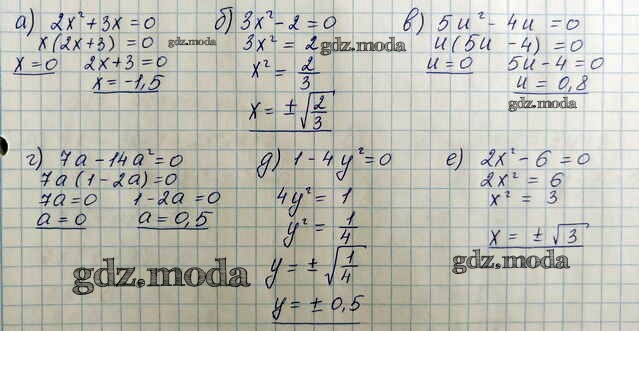 а) 2x²+3x=0
x(2x+3)=0
x=0 2x+3=0
x=-1,5
б) 3x²-2=0
3x²=2
x²=2/3
x=±√(2/3)
в) 5u²-4u=0
u(5u-4)=0
u=0 5u-4=0
u=0,8
г) 7a-14a²=0
7a(1-2a)=0
7a=0 1-2a=0
a=0 a=0,5
д) 1-4y²=0
4y²=1
y²=1/4
y=±√(1/4)
y=±0,5
е) 2x²-6=0
2x²=6
x²=3
x=±√3
gdz.moda
gdz.moda
gdz.moda
gdz.moda
gdz.moda